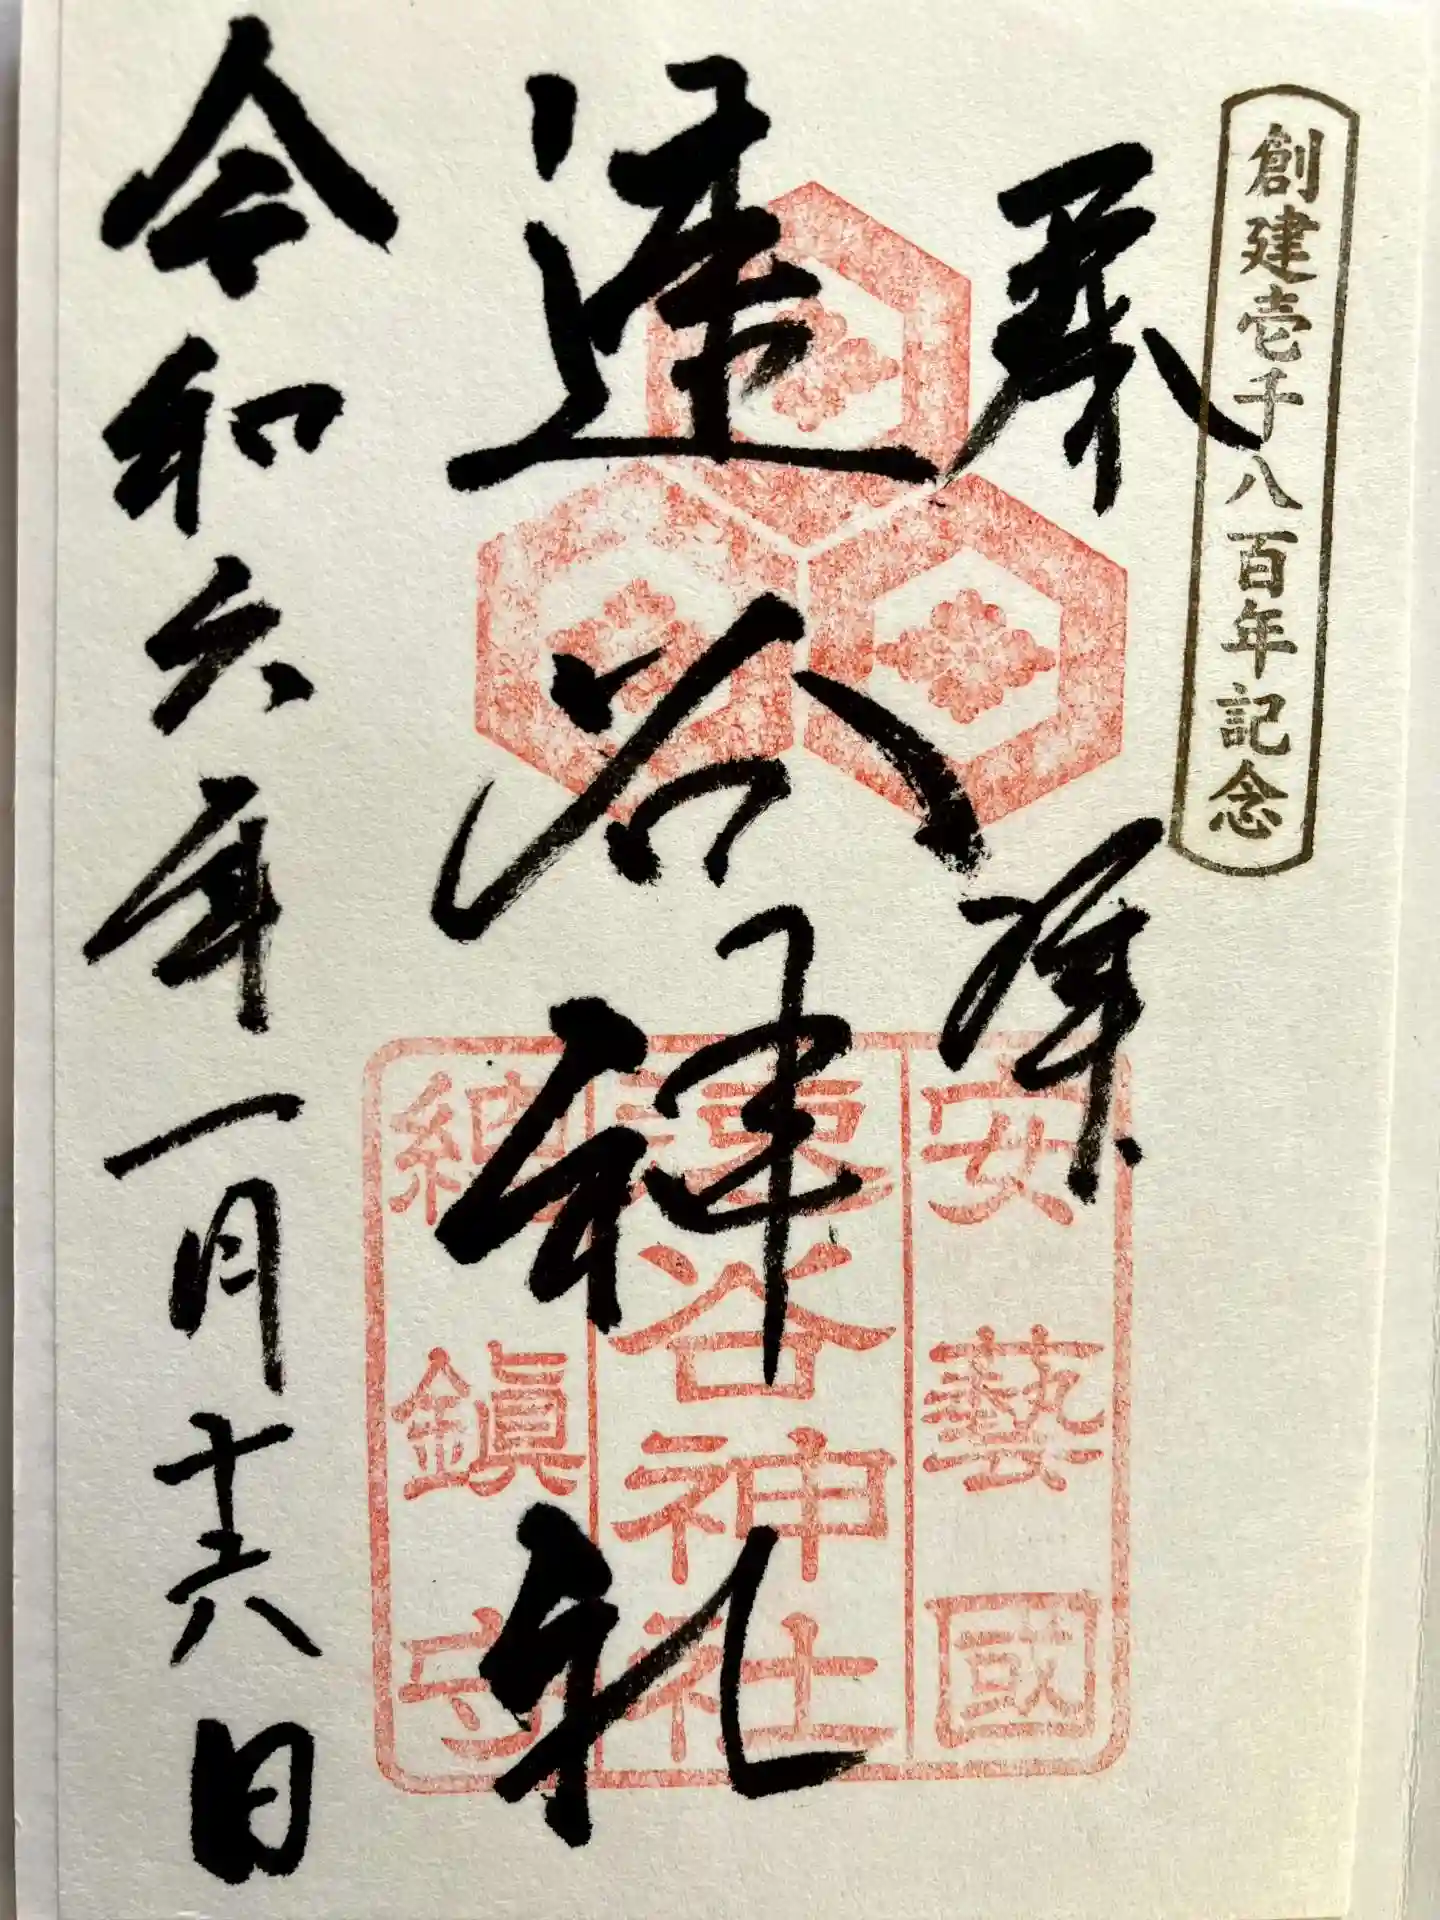 創建壱千八百年記念
奉拝
速谷神社
令和六年一月十六日
安藝國
速谷神社
總鎭守